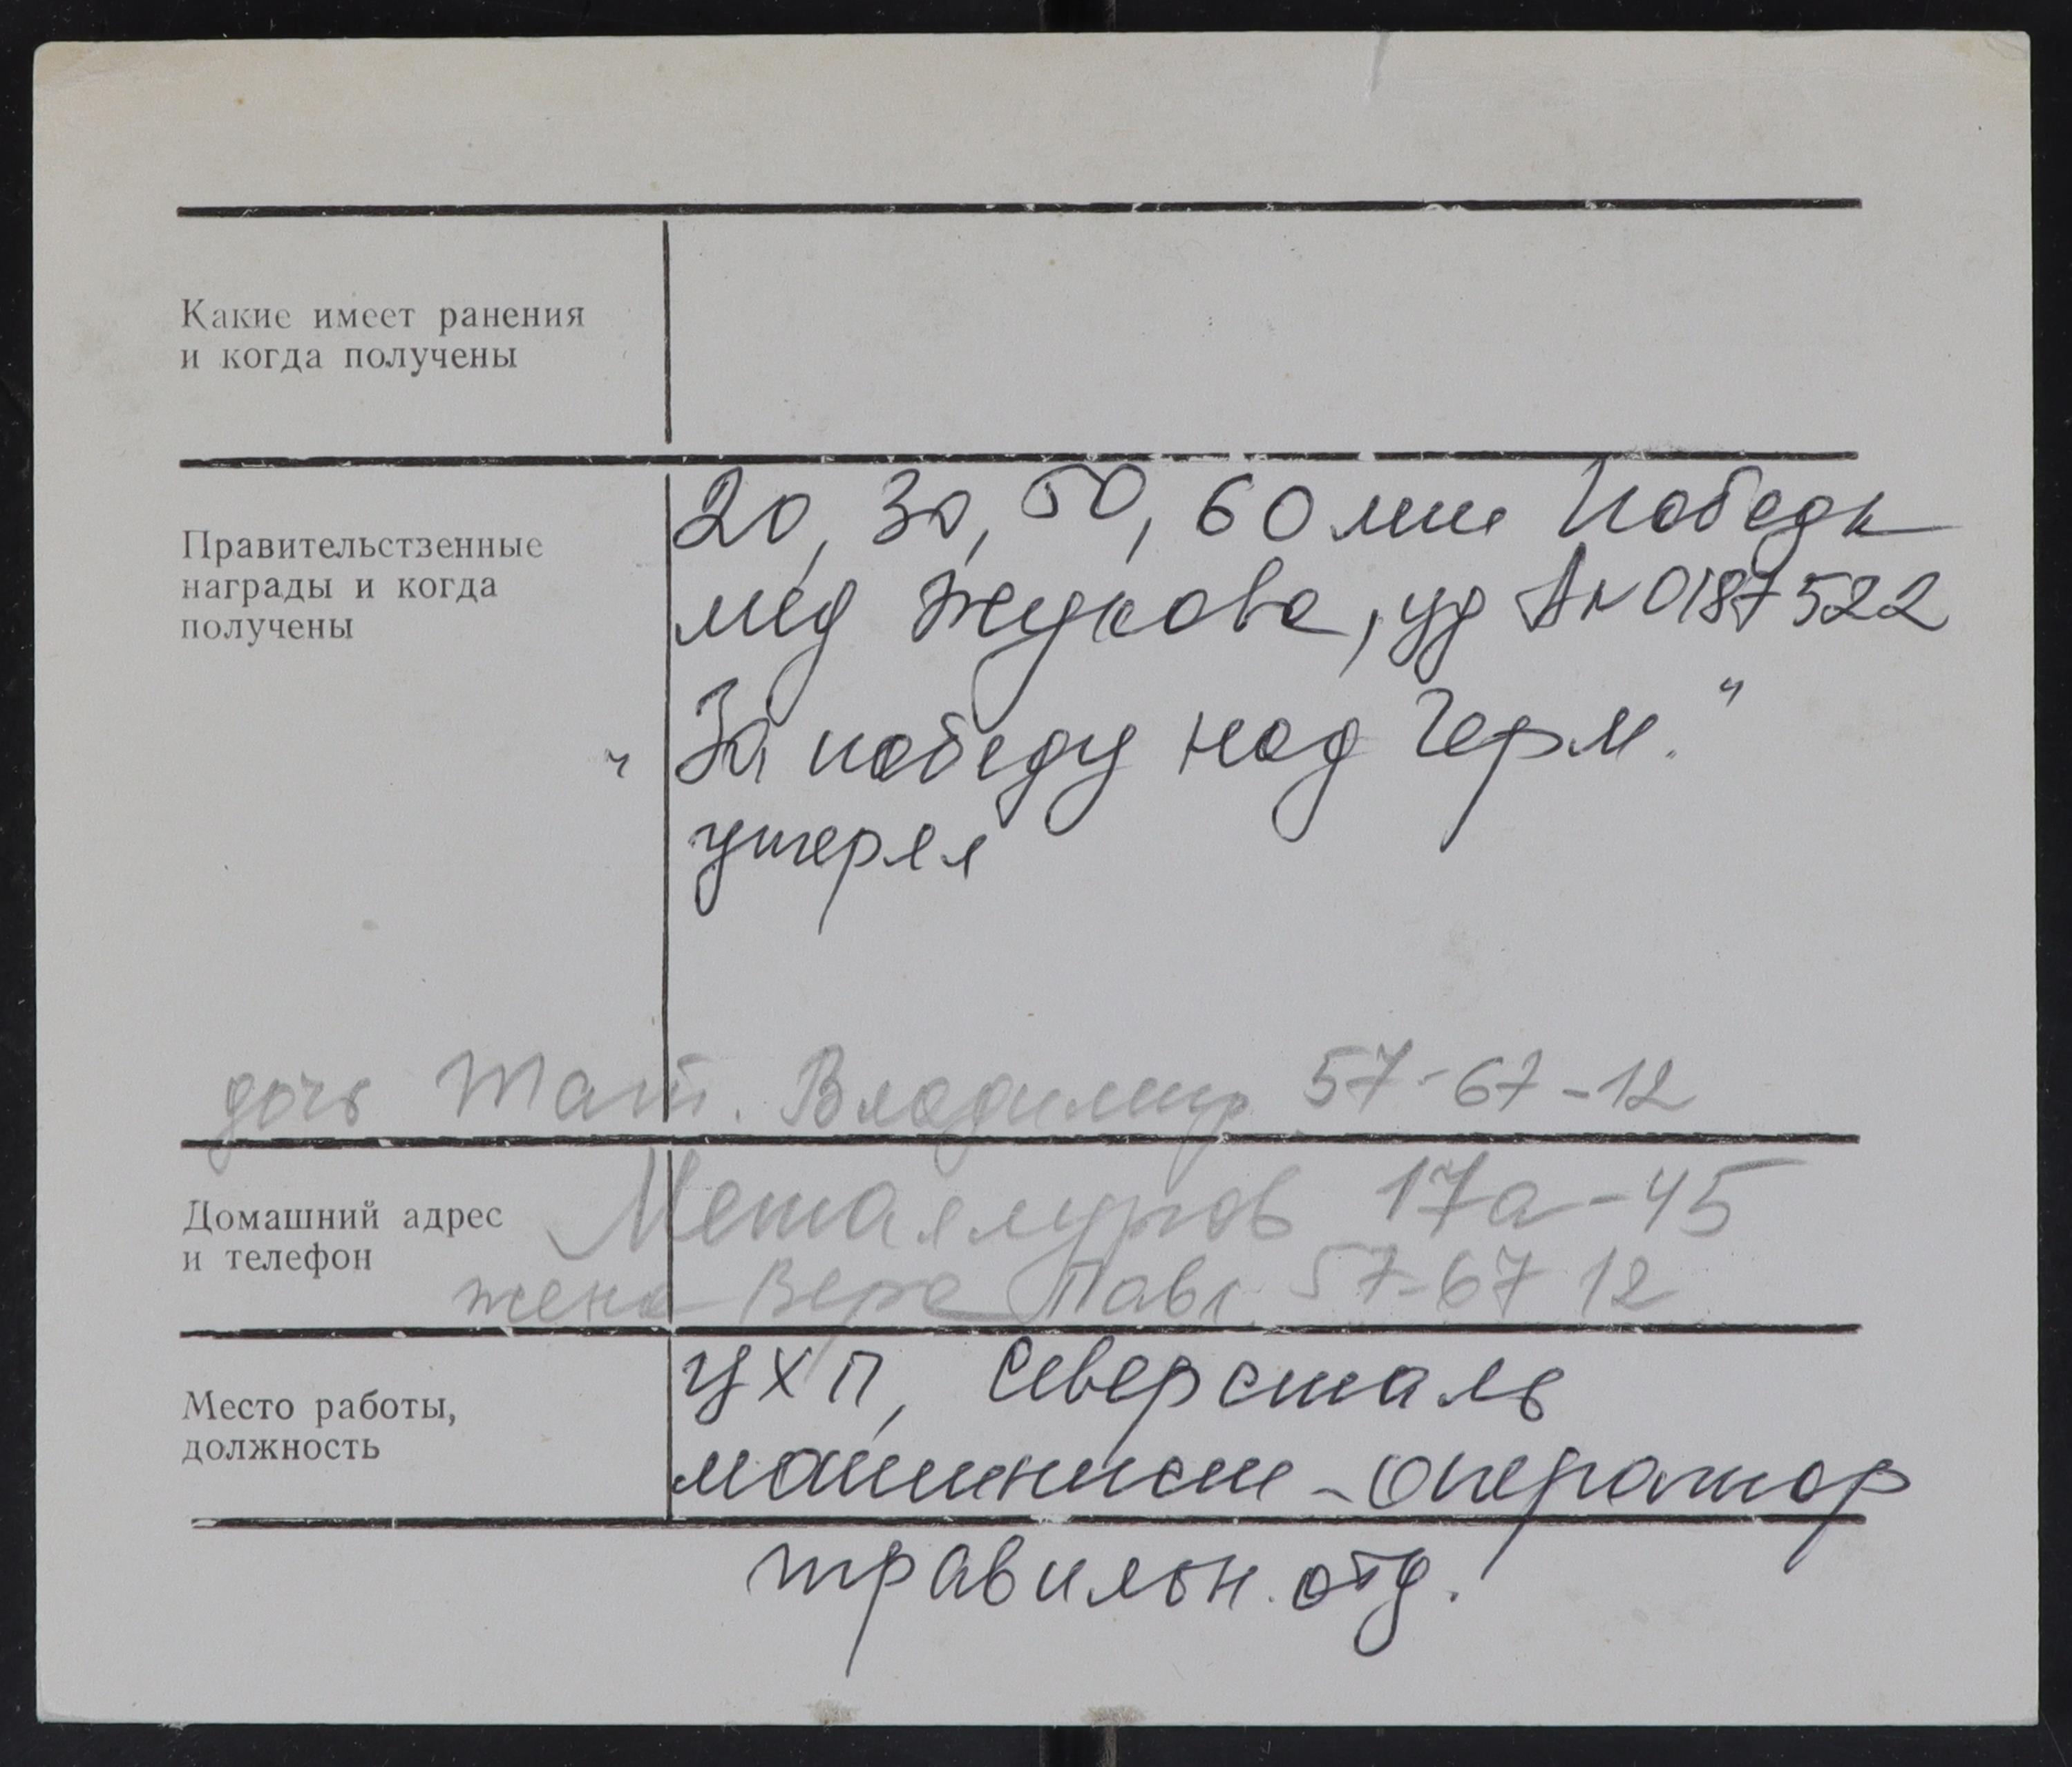 Какие имеет ранения
и когда получены
Правительстзенные
награды и когда
получены
20, 30, 50, 60 лет Победы
мед Жукова, уд А № 0187522
"За победу над Герм."
утерял
дочь Тат. Владимир 57-67-12
Домашний адрес
и телефон
Металлургов 17а-45
жена Вера Павл. 57-67 12
Место работы,
должность
ЦХП, Северсталь
машинист-оператор
травильн. отд.